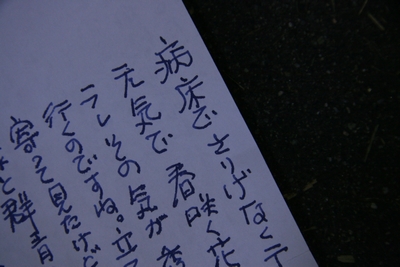 病床でさりげなく
元気で春咲く花
ラしその気が
行くのですね。立
寄って見たけど
と群青